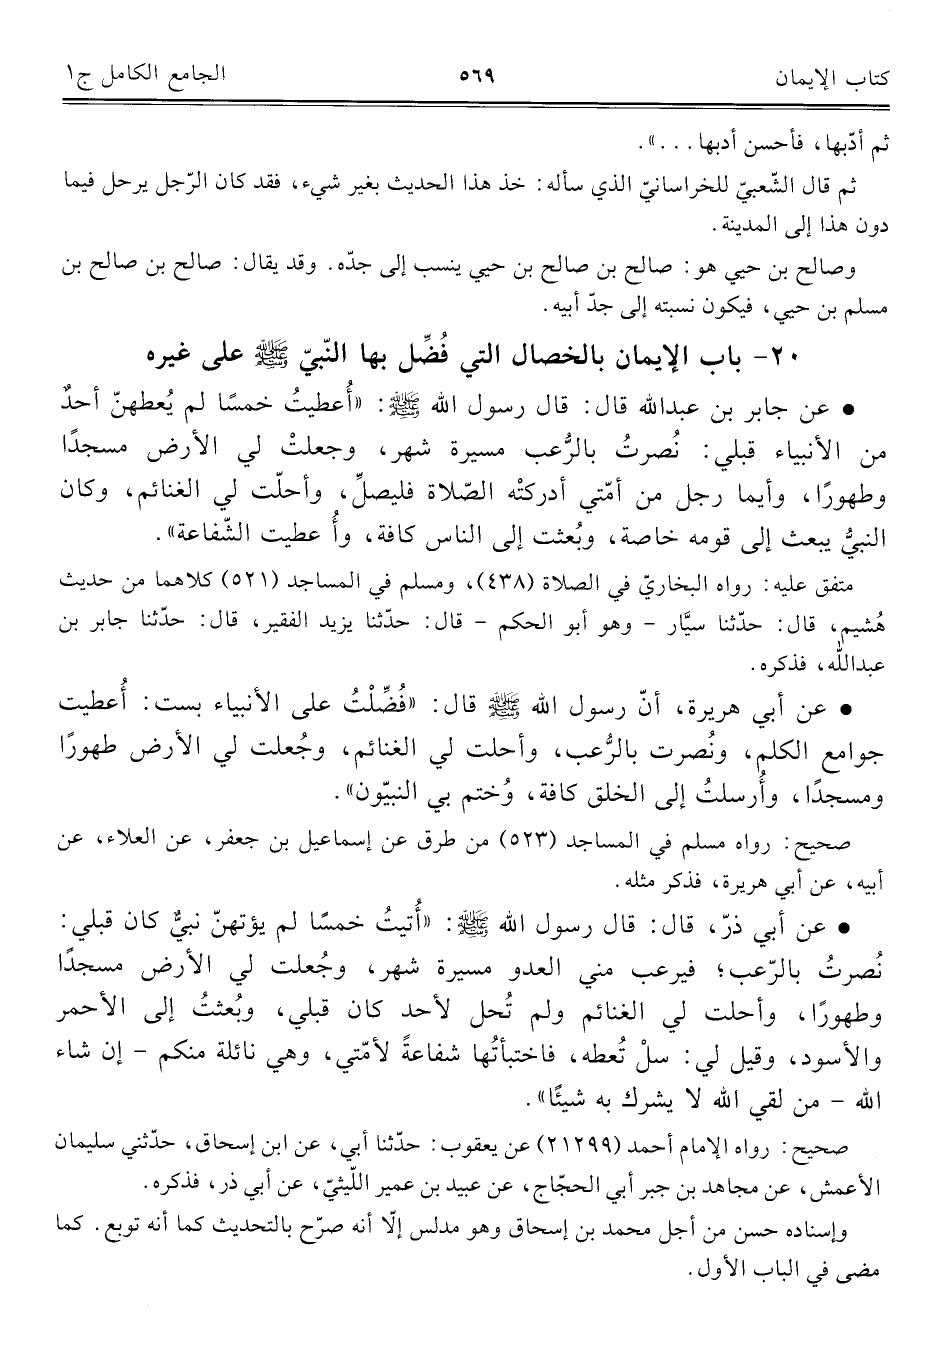 كتاب الإيمان ٥٦٩ الجامع الكامل ج١
ثم أدّبها، فأحسن أدبها . . .».
ثم قال الشّعبيّ للخراسانيّ الذي سأله: خذ هذا الحديث بغير شيء، فقد كان الرّجل يرحل فيما
دون هذا إلى المدينة.
وصالح بن حيي هو: صالح بن صالح بن حيي ينسب إلى جدّه. وقد يقال: صالح بن صالح بن
مسلم بن حيي، فيكون نسبته إلى جدّ أبيه.
٢٠- باب الإيمان بالخصال التي فُضِّل بها النّبيّ ﷺ على غيره
● عن جابر بن عبدالله قال: قال رسول الله ﷺ: «أُعطيتُ خمسًا لم يُعطهنّ أحدٌ
من الأنبياء قبلي: نُصرتُ بالرُّعب مسيرة شهر، وجعلتْ لي الأرض مسجدًا
وطهورًا، وأيما رجل من أمّتي أدركتْه الصّلاة فليصلِّ، وأحلّت لي الغنائم، وكان
النبيُّ يبعث إلى قومه خاصة، وبُعثت إلى الناس كافة، وأُ عطيت الشّفاعة».
متفق عليه: رواه البخاريّ في الصلاة (٤٣٨)، ومسلم في المساجد (٥٢١) كلاهما من حديث
هُشيم، قال: حدّثنا سيَّار - وهو أبو الحكم - قال: حدّثنا يزيد الفقير، قال: حدّثنا جابر بن
عبداللّه، فذكره.
● عن أبي هريرة، أنّ رسول الله ﷺ قال: «فُضِّلْتُ على الأنبياء بست: أُعطيت
جوامع الكلم، ونُصرت بالرُّعب، وأحلت لي الغنائم، وجُعلت لي الأرض طهورًا
ومسجدًا، وأُرسلتُ إلى الخلق كافة، وُختم بي النبيّون».
صحيح: رواه مسلم في المساجد (٥٢٣) من طرق عن إسماعيل بن جعفر، عن العلاء، عن
أبيه، عن أبي هريرة، فذكر مثله.
● عن أبي ذرّ، قال: قال رسول الله ﷺ: «أُتيتُ خمسًا لم يؤتهنّ نبيٌّ كان قبلي:
نُصرتُ بالرّعب؛ فيرعب مني العدو مسيرة شهر، وجُعلت لي الأرض مسجدًا
وطهورًا، وأحلت لي الغنائم ولم تُحل لأحد كان قبلي، وبُعثتُ إلى الأحمر
والأسود، وقيل لي: سلْ تُعطه، فاختبأتُها شفاعةً لأمّتي، وهي نائلة منكم - إن شاء
الله - من لقي الله لا يشرك به شيئًا».
صحيح: رواه الإمام أحمد (٢١٢٩٩) عن يعقوب: حدّثنا أبي، عن ابن إسحاق، حدّثني سليمان
الأعمش، عن مجاهد بن جبر أبي الحجّاج، عن عبيد بن عمير اللّيثيّ، عن أبي ذر، فذكره.
وإسناده حسن من أجل محمد بن إسحاق وهو مدلس إلّا أنه صرّح بالتحديث كما أنه توبع. كما
مضى في الباب الأول.